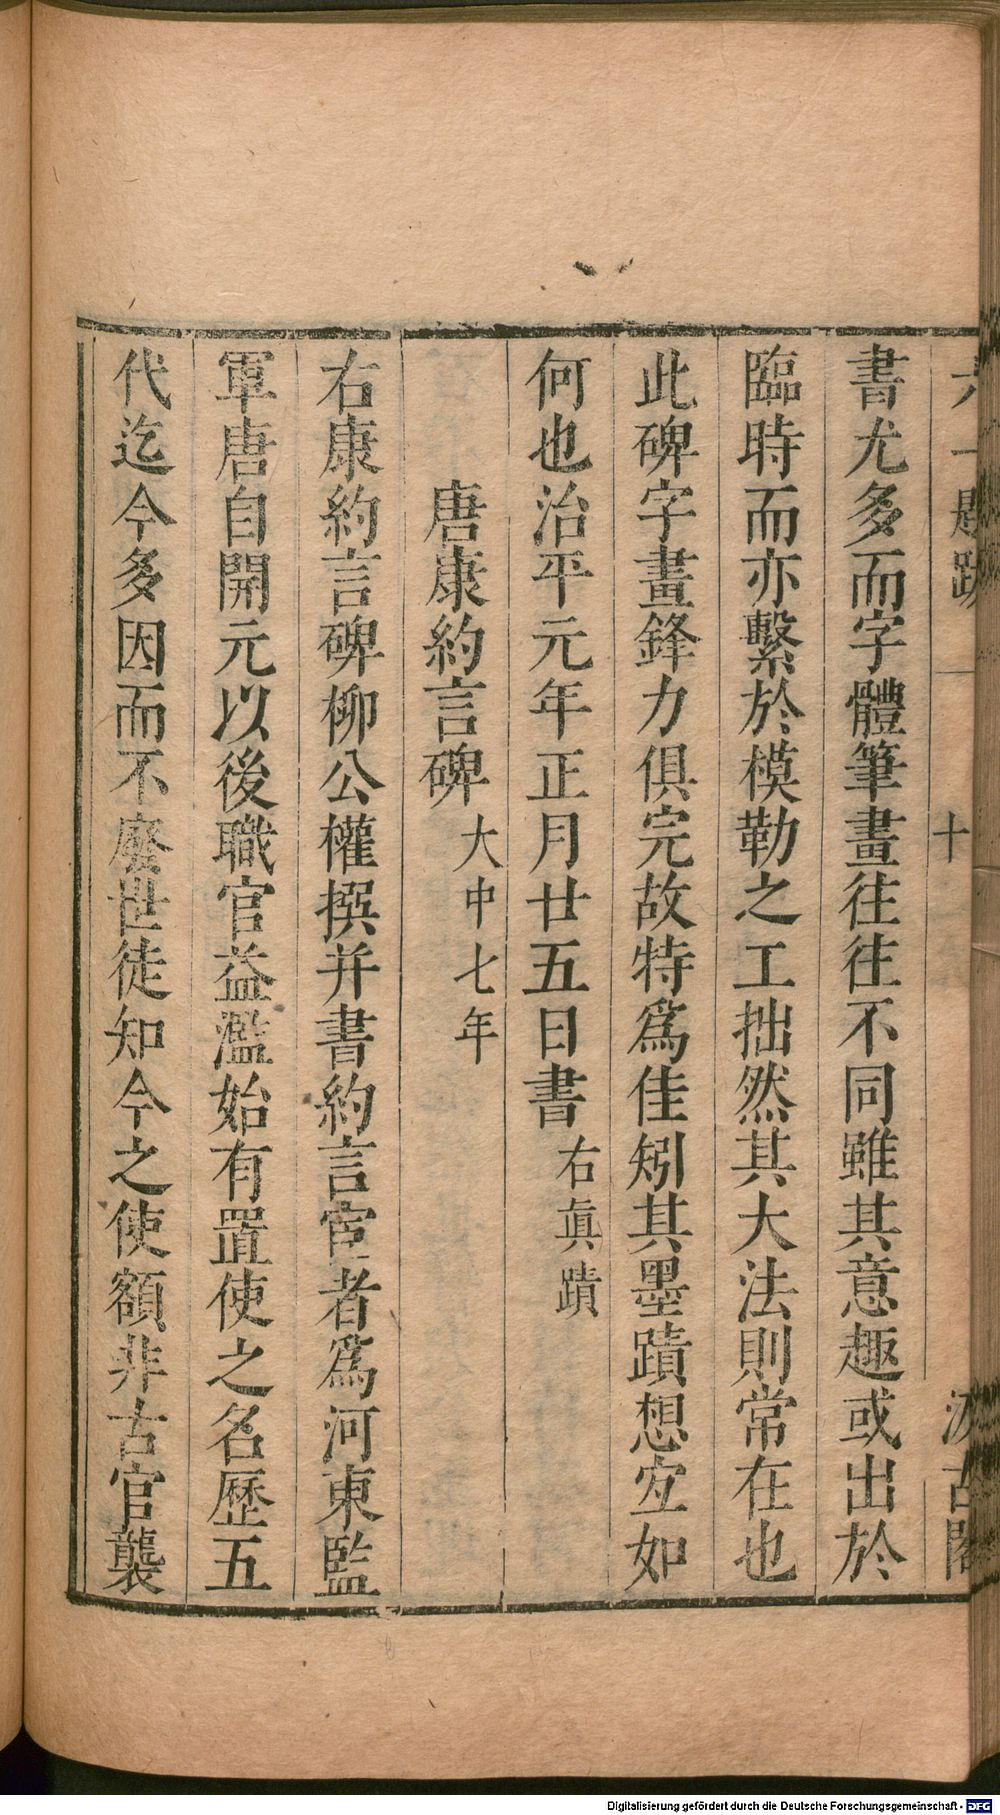 書尤多而字體筆畫往往不同雖其意趣或出於
臨時而亦繫於模勒之工拙然其大法則常在也
此碑字畫鋒力俱完故特為佳矧其墨蹟想宜如
何也治平元年正月廿五日書右眞蹟
唐康約言碑大中七年
右康約言碑柳公權撰并書約言宦者為河東監
軍唐自開元以後職官益濫始有置使之名歷五
代迄今多因而不廢世徒知今之使額非古官襲
六一題跋 十 汲古閣
Digitalisierung gefördert durch die Deutsche Forschungsgemeinschaft - DFG